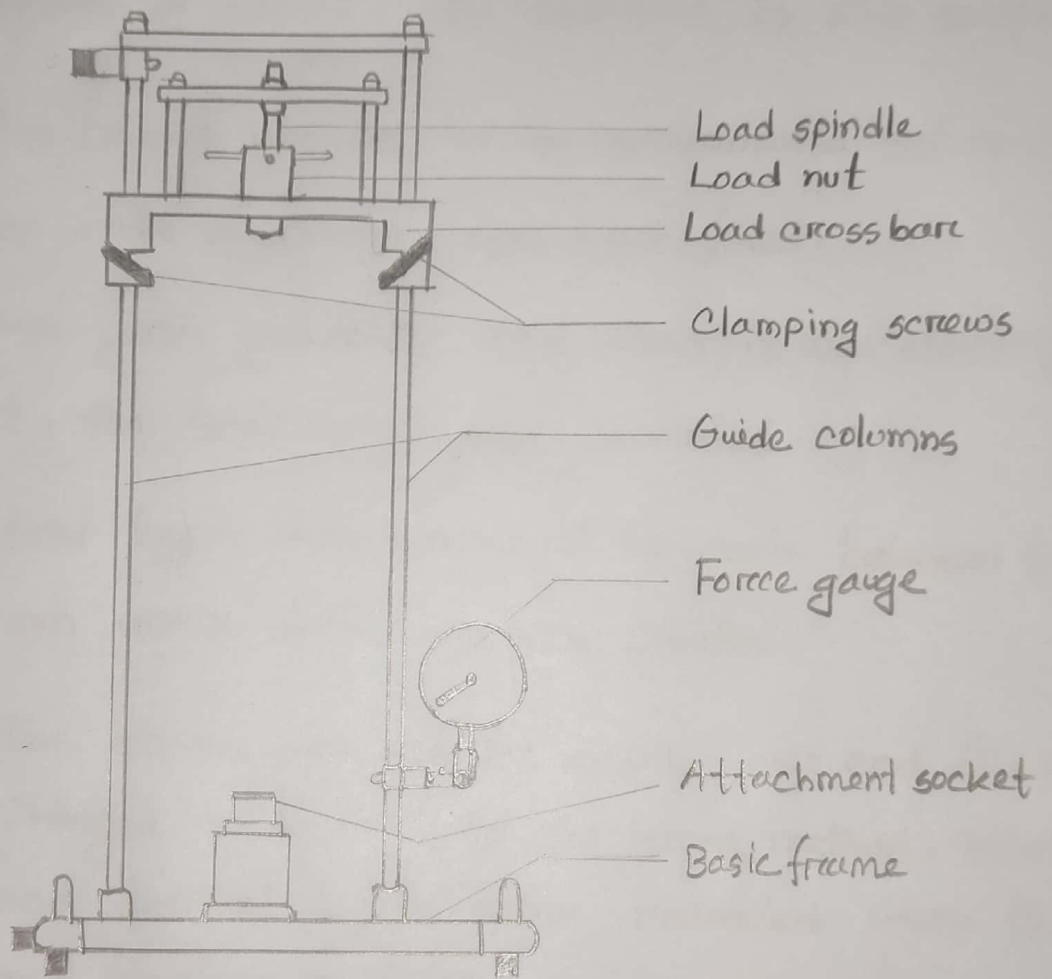 Load spindle
Load nut
Load cross bar
Clamping screws
Guide columns
Force gauge
Attachment socket
Basic frame